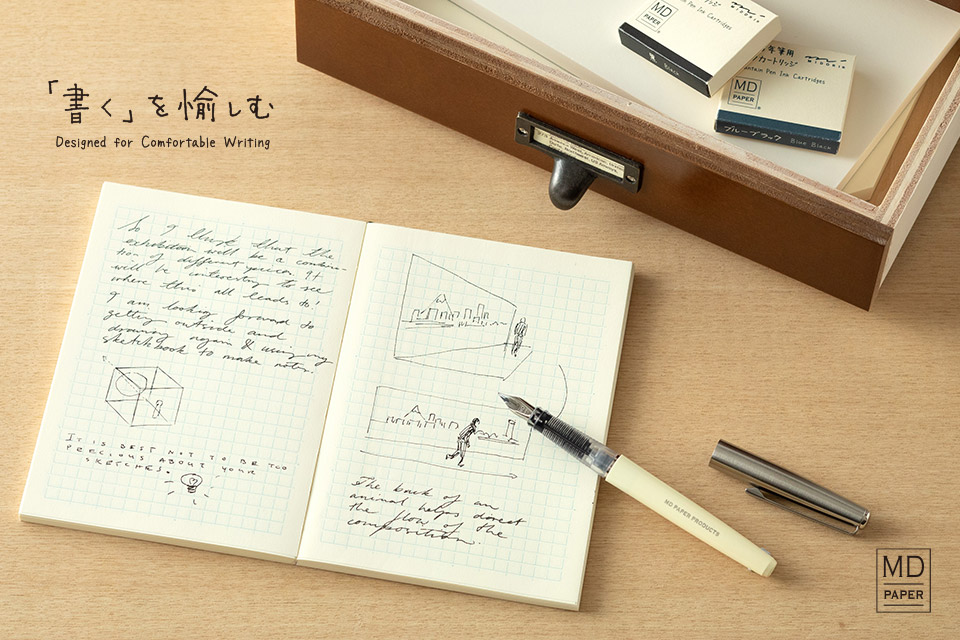 「書く」を愉しむ
Designed for Comfortable Writing
MD
PAPER
MIDORI
黒 Black
MD
PAPER
年筆用
カートリッジ
MIDORI
Fountain Pen Ink Cartridges
ブルーブラック Blue Black
So I think that the
exhibition will be a combina-
tion of different pieces. It
will be interesting to see
where this all leads to!
I am looking forward to
getting outside and
drawing again & using my
sketchbook to make notes.
IT IS BEST NOT TO BE TOO
PRECIOUS ABOUT YOUR
SKETCHES.
The back of an
animal helps direct
the flow of the
composition.
MD PAPER PRODUCTS
MD
PAPER